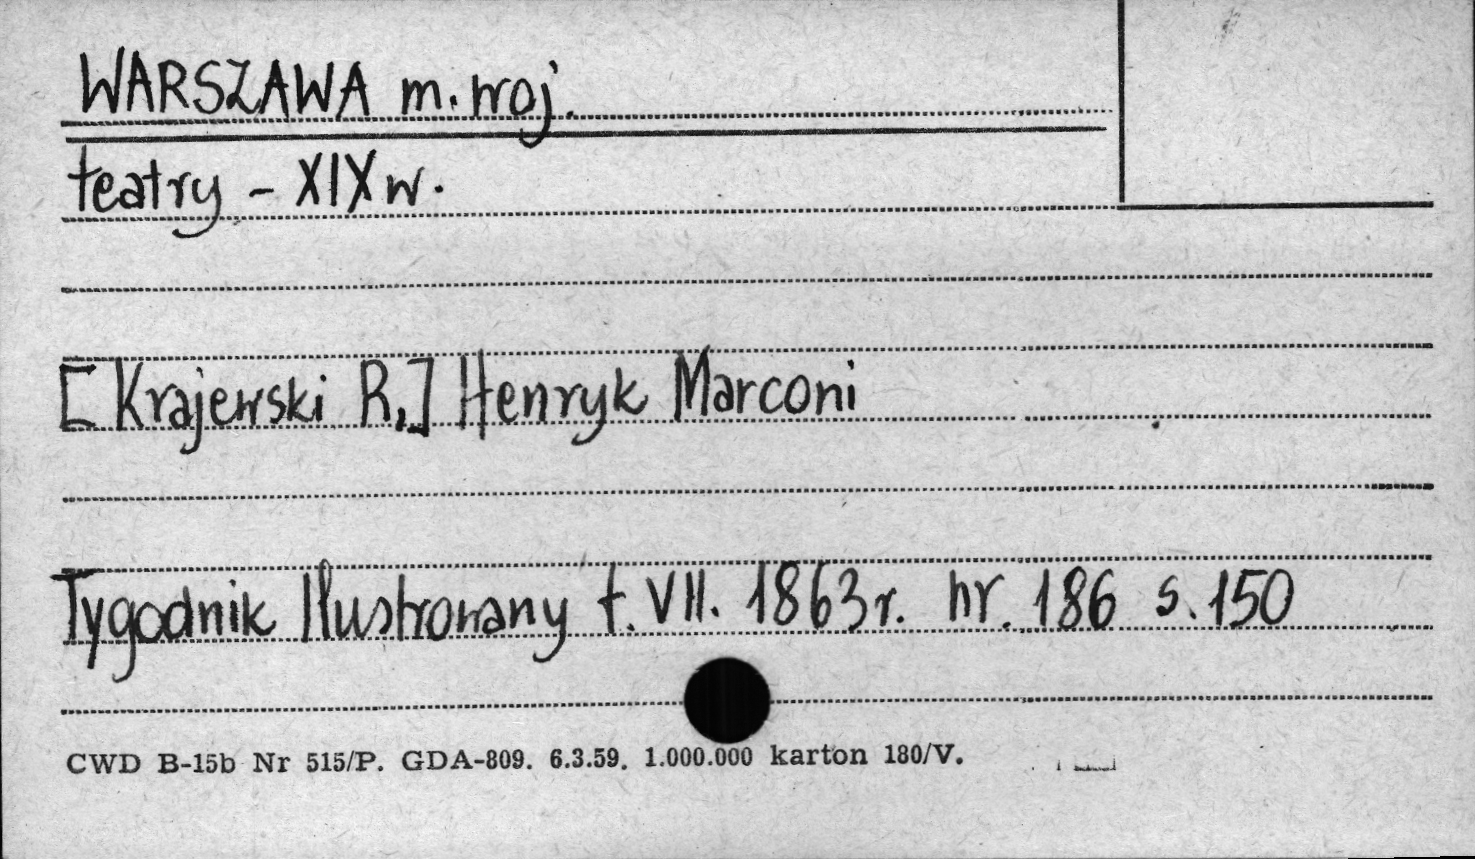 WARSZAWA m. woj.
teatry - XIX w.
[Krajewski R.] Henryk Marconi
Tygodnik Ilustrowany t. VII. 1863 r. nr. 186 s. 150
CWD B-15b Nr 515/P. GDA-809. 6.3.59. 1.000.000 karton 180/V.